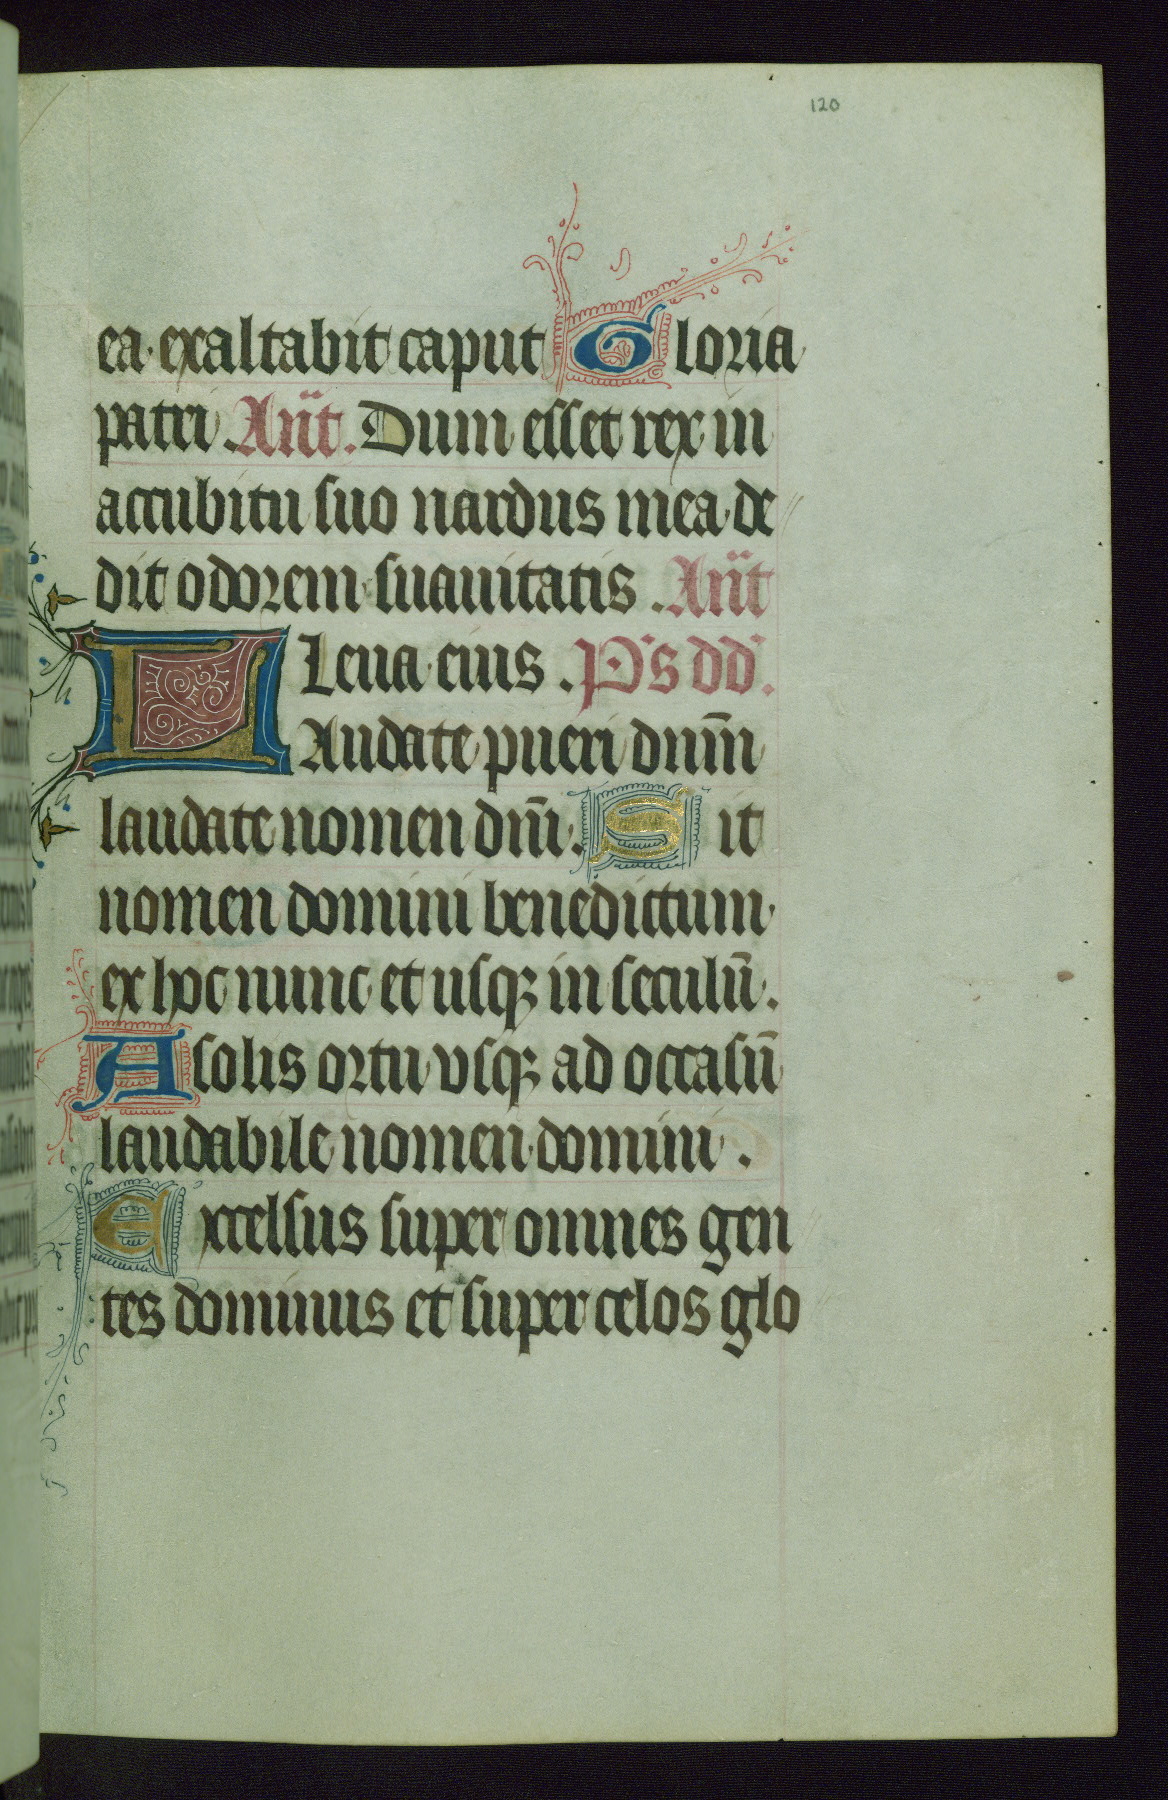 120
ea exaltabit caput Gloria
patri Añt. Dum esset rex in
accubitu suo nardus mea de
dit odorem suauitatis. Añt
Leua eius. Ps dd.
LAudate pueri dnm̄
laudate nomen dm̄i. Sit
nomen domini benedictum
ex hoc nunc et usqꝫ in seculū.
A solis ortu vsqꝫ ad occasū
laudabile nomen domini.
Excelsus super omnes gen
tes dominus et super celos glo